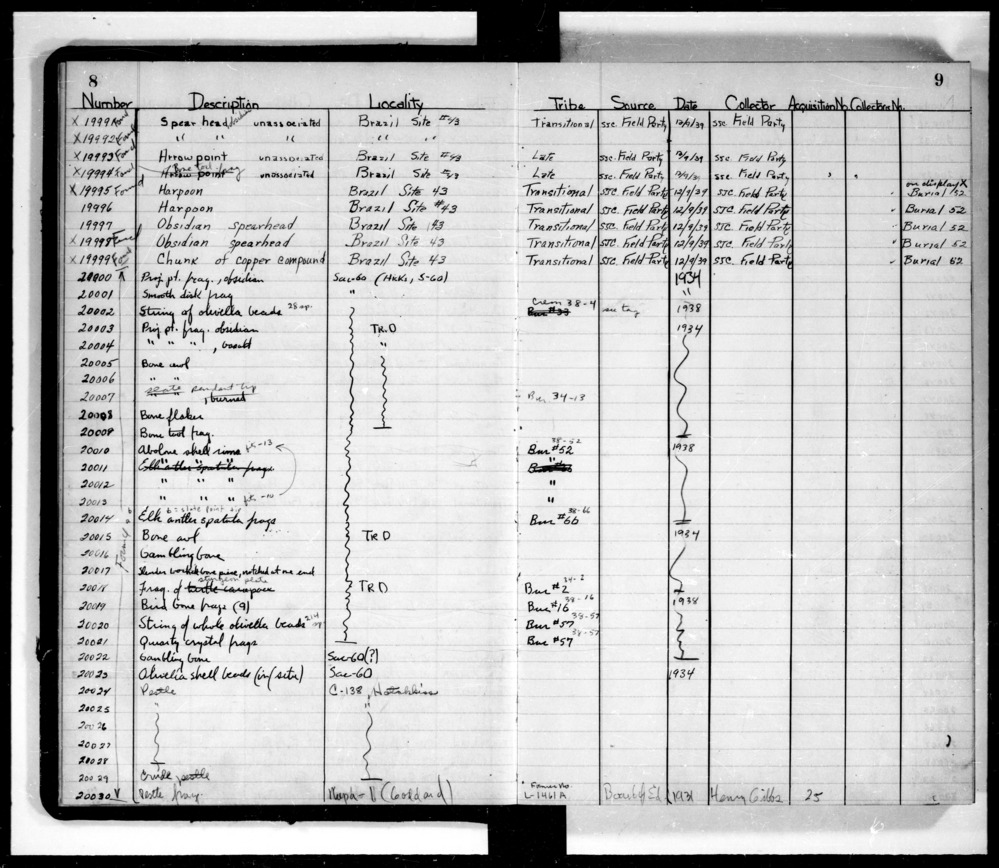 8
9
Number Description Locality Tribe Source Date Collector Acquisition No. Collectors No.
X 19991 Found Spear head unassociated Brazil Site #43 Transitional SJC. Field Party 12/9/39 SJC Field Party
X 19992 Found " " " " "
X 19993 Found Arrow point unassociated Brazil Site #43 Late SJC. Field Party 12/9/39 SJC. Field Party
Bone tool frag
X 19994 Found Arrow point unassociated Brazil Site #43 Late SJC. Field Party 12/9/39 SJC. Field Party " "
on display X
X 19995 Found Harpoon Brazil Site 43 Transitional SJC. Field Party 12/9/39 SJC. Field Party Burial 52
19996 Harpoon Brazil Site #43 Transitional SJC. Field Party 12/9/39 SJC. Field Party Burial 52
19997 Obsidian spearhead Brazil Site 43 Transitional SJC. Field Party 12/9/39 SJC. Field Party Burial 52
X 19998 Found Obsidian spearhead Brazil Site 43 Transitional SJC. Field Party 12/9/39 SJC. Field Party Burial 52
X 19999 Found Chunk of copper compound Brazil Site 43 Transitional SJC. Field Party 12/9/39 SJC. Field Party Burial 52
20000 Proj. pt. frag., obsidian Sac-60 (Hicks, S-60) 1934
20001 Smooth disk frag " "
Crem 38-4
20002 String of olivella beads 28 sp. Bur #33 see tag 1938
20003 Proj. pt. frag. obsidian TR.D 1934
20004 " " " , basalt "
20005 Bone awl
20006 " "
slate pendant tip
20007 , burned Bur 34-13
20008 Bone flaker
20009 Bone tool frag.
38-52
20010 Abalone shell rims fr-13 Bur #52 1938
20011 Elk antler spatula frags "
20012 " " " "
20013 " " " fr-10 "
b = slate point tip 38-66
20014 Elk antler spatula frags Bur #66
20015 Bone awl TR D 1934
20016 Gambling bone
20017 Slender worked bone piece, notched at one end
sturgeon plate 34-2
20018 Frag. of turtle carapace TR D Bur #2
38-16
20019 Bird bone frags (9) Bur #16 1938
38-57
20020 String of whole olivella beads 214 sp Bur #57
38-57
20021 Quartz crystal frags Bur #57
20022 Gambling bone Sac-60 (?)
20023 Olivella shell beads (in situ) Sac-60 1934
20024 Pestle C-138, Hotchkiss
20025 "
20026
20027
20028
20029 Crude pestle
Former No.
20030 V Pestle frag. Napa-11 (Goddard) L-1461A 1931 Henry Gibbs 25
Found